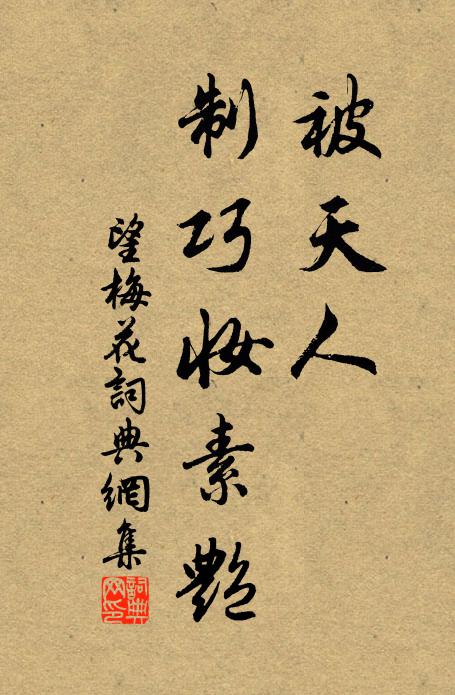 被天人
制巧妆素艷
望梅花詞典網集
詞典网印